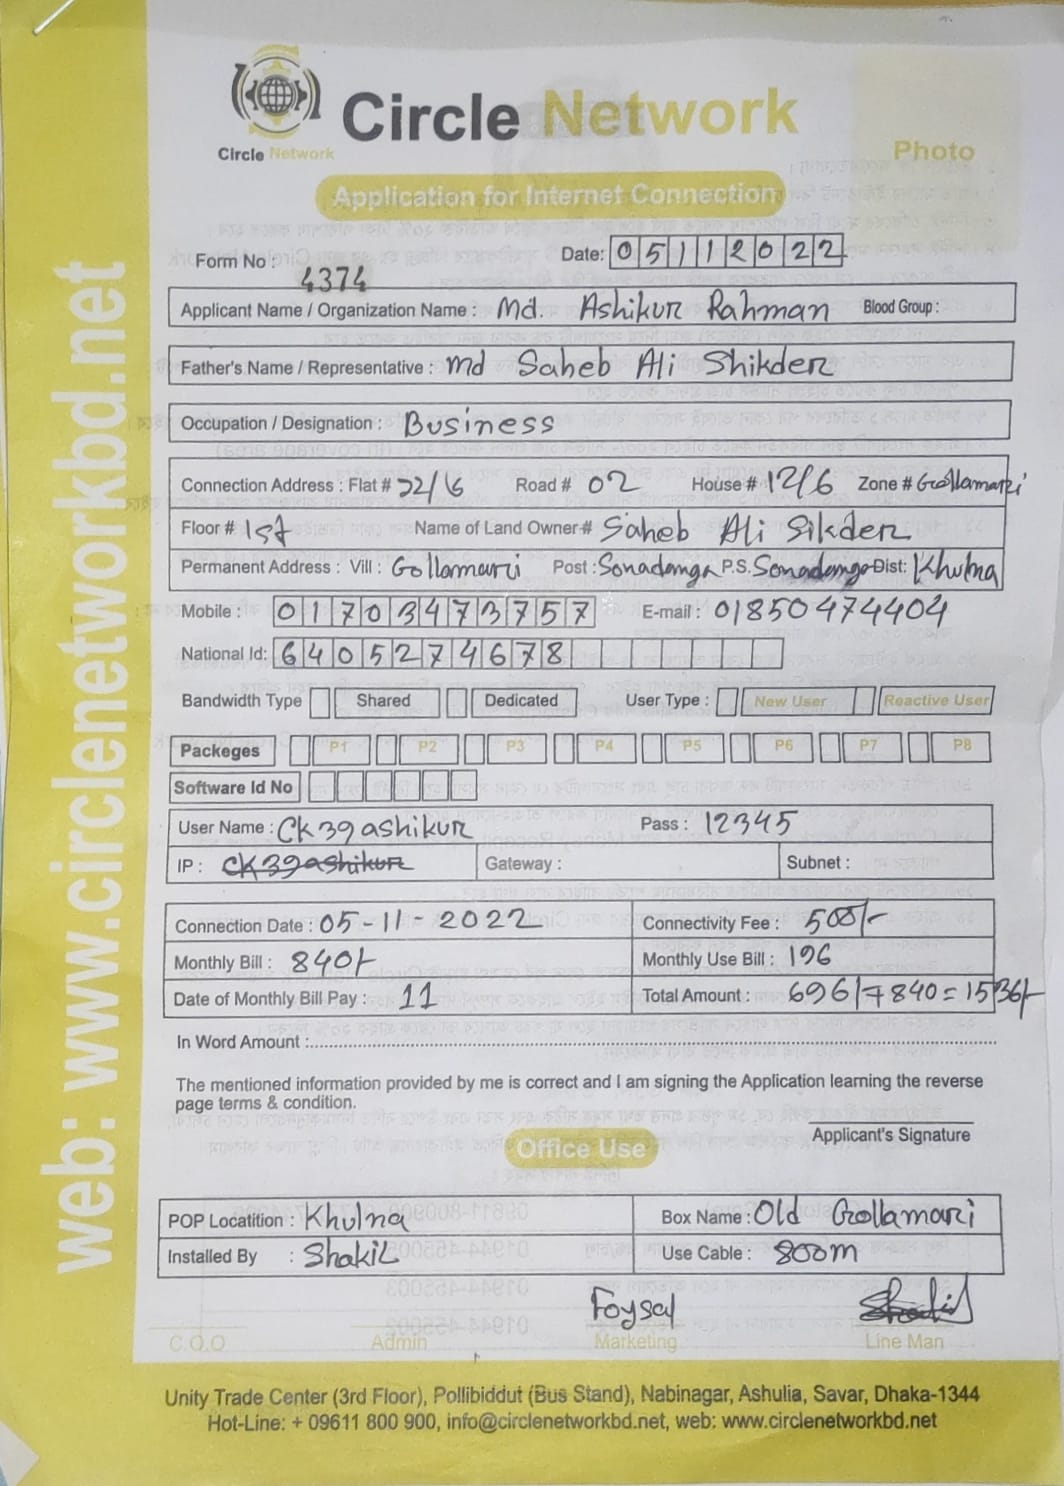 Circle Network
Circle Network
Photo
Application for Internet Connection
Form No : 4374
Date: 05112022
Applicant Name / Organization Name : Md. Ashikur Rahman Blood Group :
Father's Name / Representative : md Saheb Ali Shikder
Occupation / Designation : Business
Connection Address : Flat # Road # 02 House # 12/6 Zone # Gollamari
Floor # 1st Name of Land Owner# Saheb Ali Sikder
Permanent Address : Vill : Gollamari Post : Sonadanga P.S. Sonadanga Dist: Khulna
Mobile : 01703473757 E-mail : 01850474404
National Id: 6405274678
Bandwidth Type Shared Dedicated User Type : New User Reactive User
Packeges P1 P2 P3 P4 P5 P6 P7 P8
Software Id No
User Name : CK39ashikur Pass : 12345
IP : CK39ashikur Gateway : Subnet :
Connection Date : 05-11-2022 Connectivity Fee : 500/-
Monthly Bill : 840/- Monthly Use Bill : 196
Date of Monthly Bill Pay : 11 Total Amount : 696/+840=1536/-
In Word Amount :
The mentioned information provided by me is correct and I am signing the Application learning the reverse
page terms & condition.
Applicant's Signature
Office Use
POP Locatition : Khulna Box Name : Old Gollamari
Installed By : Shakil Use Cable : 800m
Foysal
C.O.O Admin Marketing Line Man
Unity Trade Center (3rd Floor), Pollibiddut (Bus Stand), Nabinagar, Ashulia, Savar, Dhaka-1344
Hot-Line: + 09611 800 900, info@circlenetworkbd.net, web: www.circlenetworkbd.net
web: www.circlenetworkbd.net